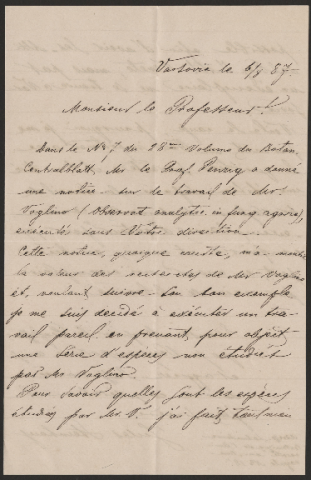 Varsovie le 6/X 87.
Monsieur le Professeur!
Dans le No 7 du 28me Volume du Botan.
Centralblatt, Mr le Prof. Penzig a donné
une notice sur le travail de Mr
Voglino (Observat analytic. in fung agaric),
exécuté sous Vôtre direction.
Cette notice, quoique courte, m'a montré
la valeur des recherches de Mr Voglino
et, voulant suivre son bon exemple
je me suis decidé à exécuter un tra-
vail pareil en prenant pour objet
une série d'espèces non étudiées
par Mr Voglino.
Pour savoir quelles sont les espèces
étudiées par Mr V. j'ai fait